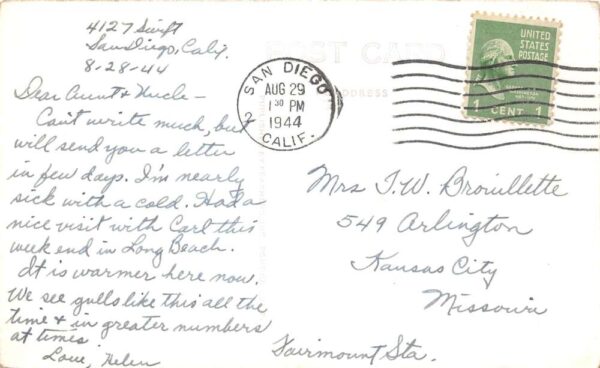 4127 Swift
San Diego, Calif.
8-28-44
Dear Aunt & Uncle –
Can't write much, but
will send you a letter
in few days. I'm nearly
sick with a cold. Had a
nice visit with Carl this
week end in Long Beach.
It is warmer here now.
We see gulls like this all the
time & in greater numbers
at times.
Love, Helen
POST CARD
ADDRESS
SAN DIEGO
AUG 29
1 30 PM
1944
2
CALIF.
UNITED
STATES
POSTAGE
1 CENT 1
Mrs T. W. Brouillette
549 Arlington
Kansas City
Missouri
Fairmount Sta.